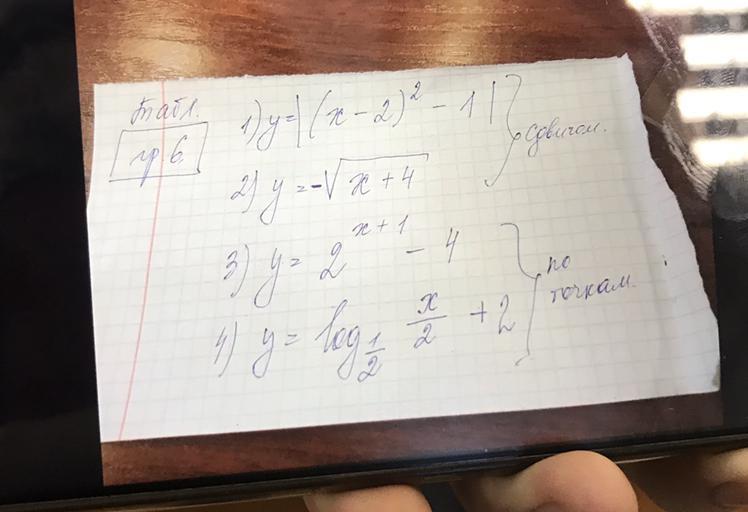 табл.
гр 6.
1) y = |(x - 2)² - 1|
2) y = -√(x + 4)
сдвигом.
3) y = 2^(x + 1) - 4
4) y = log_(1/2) x/2 + 2
по
точкам.